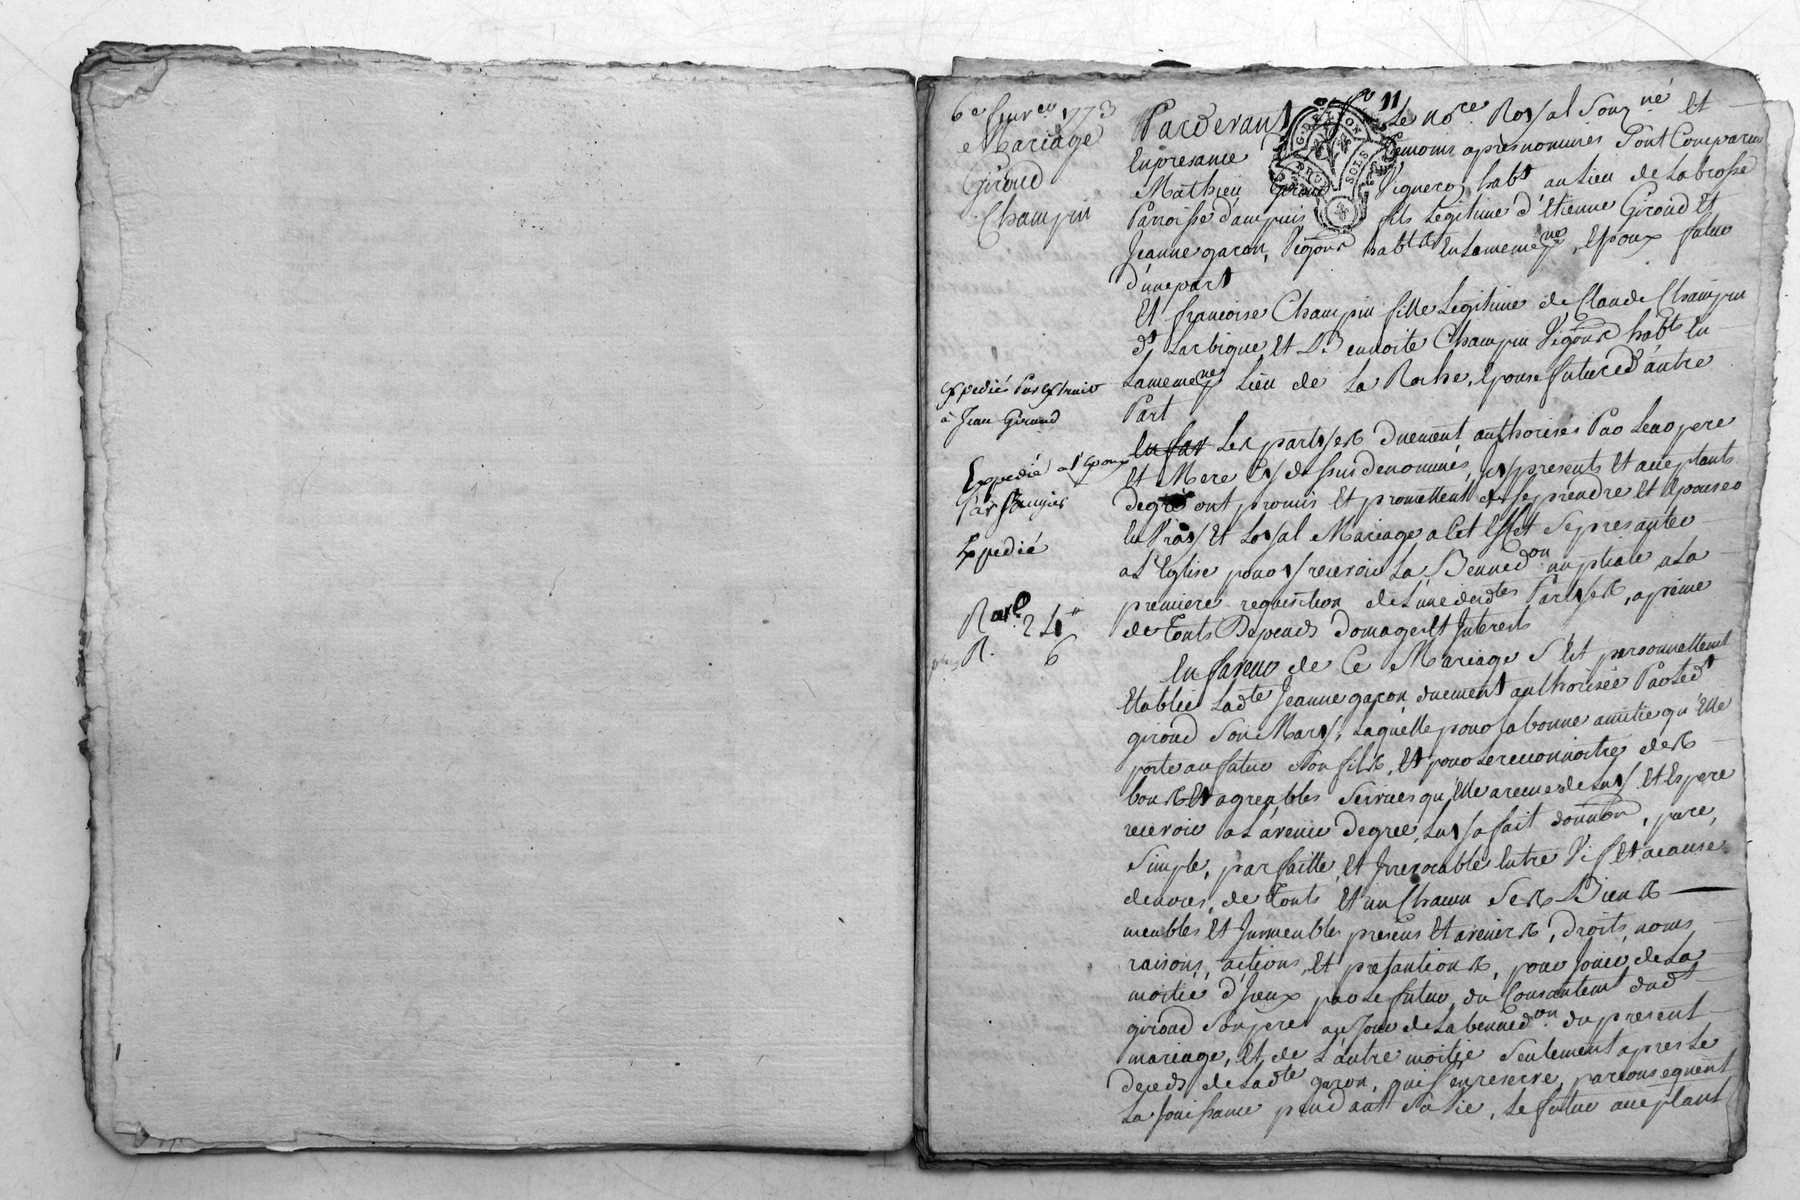 11
6e fevrer 1773
Mariage
Giroud
Champin
Expediés Par Extrait
à Jean Giraud
Expedié a l'Epoux
Par
Expedié
24
R. 6
Pardevant Le nore Royal Sousné Et
Enpresance Temoins apresnommés Sont Comparus
Mathieu Giroud Vigneron habt au Lieu de Labrosse
Parroisse d'ampuis fils Legitime d'Etienne Giroud Et
Jeanne garon, habts En Lameme Epoux futur
d'unepart
Et francoise Champin fille Legitime de Claude Champin
dt Larbique Et Bennoite Champin habts En
Lameme Lieu de La Roche, Epouse future d'autre
Part
Les partyes duement authorisés Par Leur pere
Et Mere Cy dessus denommés, presents Et aceptants
degré ont promis Et promettent de Seprendre Et Epouser
En Vray Et Loyal Mariage a Cet Effet Sepresanter
a L'Eglise pour y recevoir La Benned.on nuptiale a La
premiere requisition de L'une desdtes Partyes, apeine
de Touts Depends domages Et Interests
En faveur de Ce Mariage S'Est personnellemt
Etablie Ladte Jeanne garon duement authorisée Par Ledt
giroud Son Mary, Laquelle pour la bonne amitié qu'Elle
porte au futur Son fils, Et pour Le reconnoitre des
bons Et agreables Services qu'Elle a receu de Luy Et Espere
recevoir a L'avenir degré, Luy a fait donnon, pure,
Simple, parfaitte, Et Irrevocable Entre Vif Et acause
denoces, de Touts Et un Chacun Ses Biens
meubles Et Immeubles presens Et avenirs, droits, noms,
raisons, actions, Et pretantions, pour Jouir de La
moitié d'Iceux par Le futur, du Consantemt dudt
giroud Son pere au Jour de La benned.on du present
mariage, Et de L'autre moitié Seulement apres Le
deceds de Ladte garon, qui S'en reserve, par consequent
La Jouissance pendant Sa Vie, Le futur aceptant